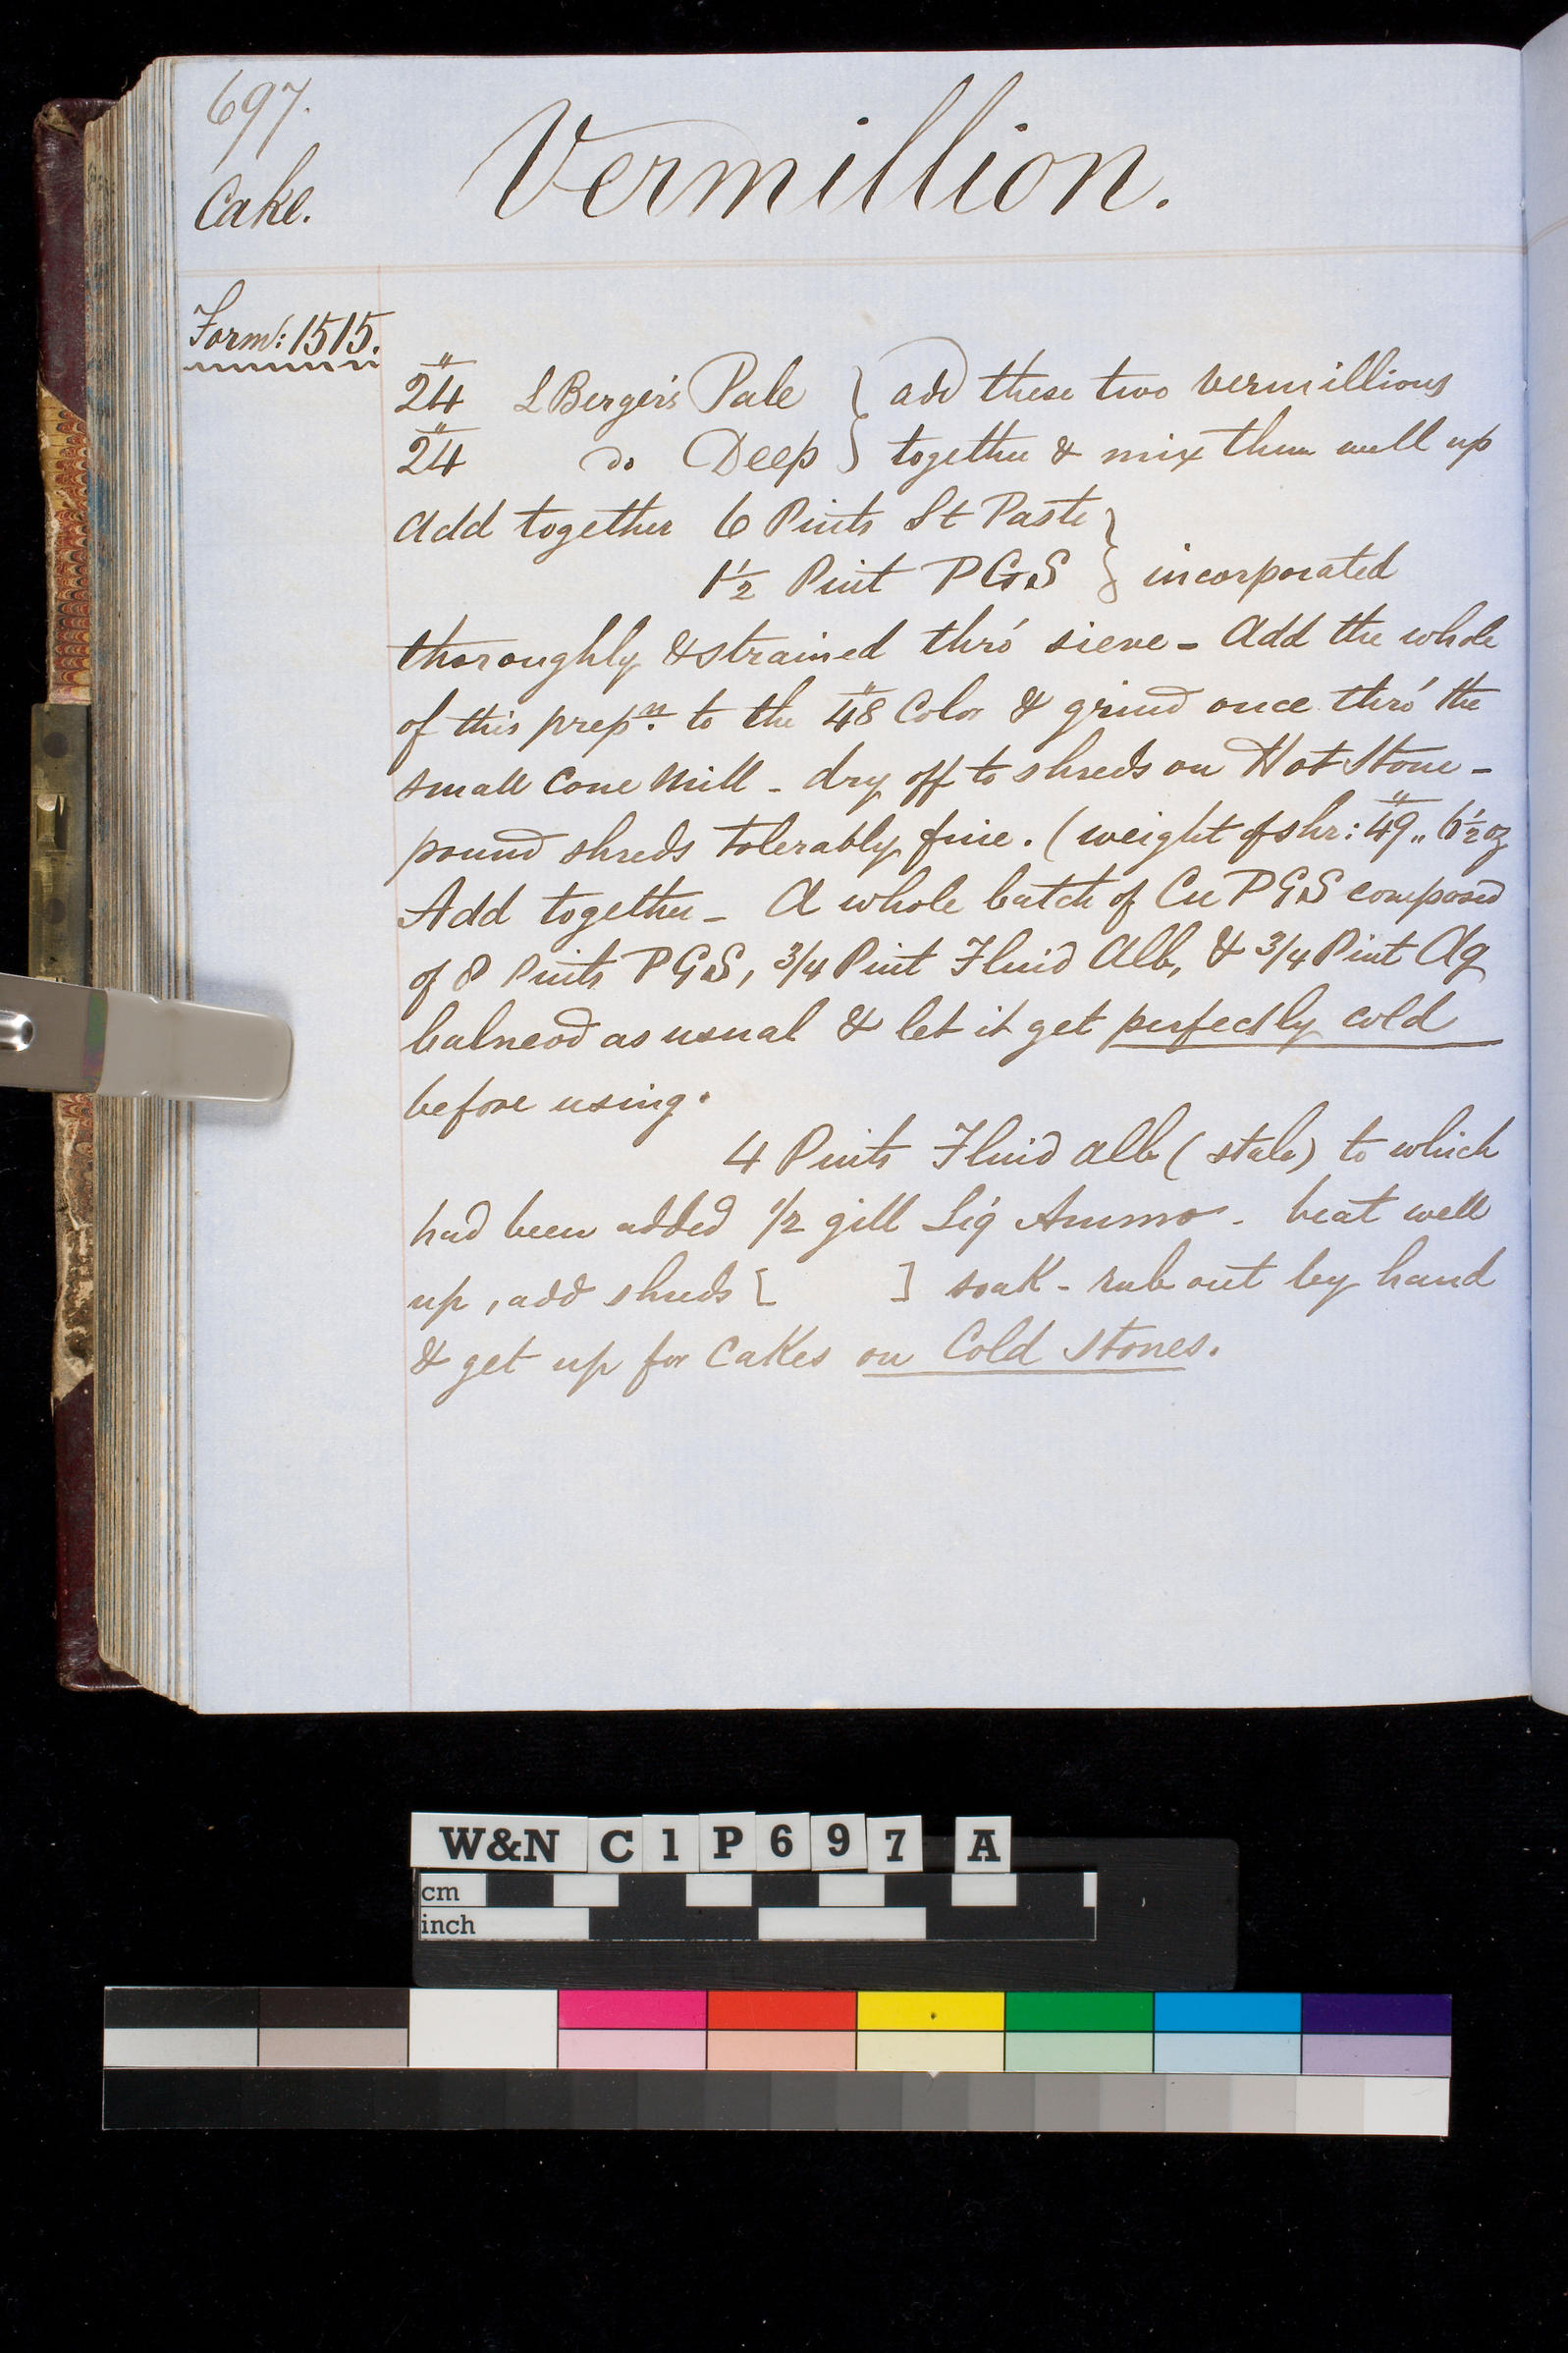 697.
Cake.
Vermillion.
Form: 1515.
24" L Berger's Pale } add these two vermillions
24" do Deep } together & mix them well up
Add together 6 Pints St Paste }
1½ Pint PGS } incorporated
thoroughly & strained thro' sieve - Add the whole
of this prepn. to the 48" Color & grind once thro' the
small Cone Mill - dry off to shreds on Hot Stone -
pound shreds tolerably fine. (weight of shr: 49" „ 6½ oz
Add together - A whole batch of Cu PGS composed
of 8 Pints PGS, 3/4 Pint Fluid Alb, & 3/4 Pint Aq
balneod as usual & let it get perfectly cold
before using.
4 Pints Fluid alb (stale) to which
had been added 1/2 gill Liq Ammo - beat well
up, add shreds [ ] soak - rub out by hand
& get up for Cakes on Cold Stones.
W&N C1P697 A
cm
inch